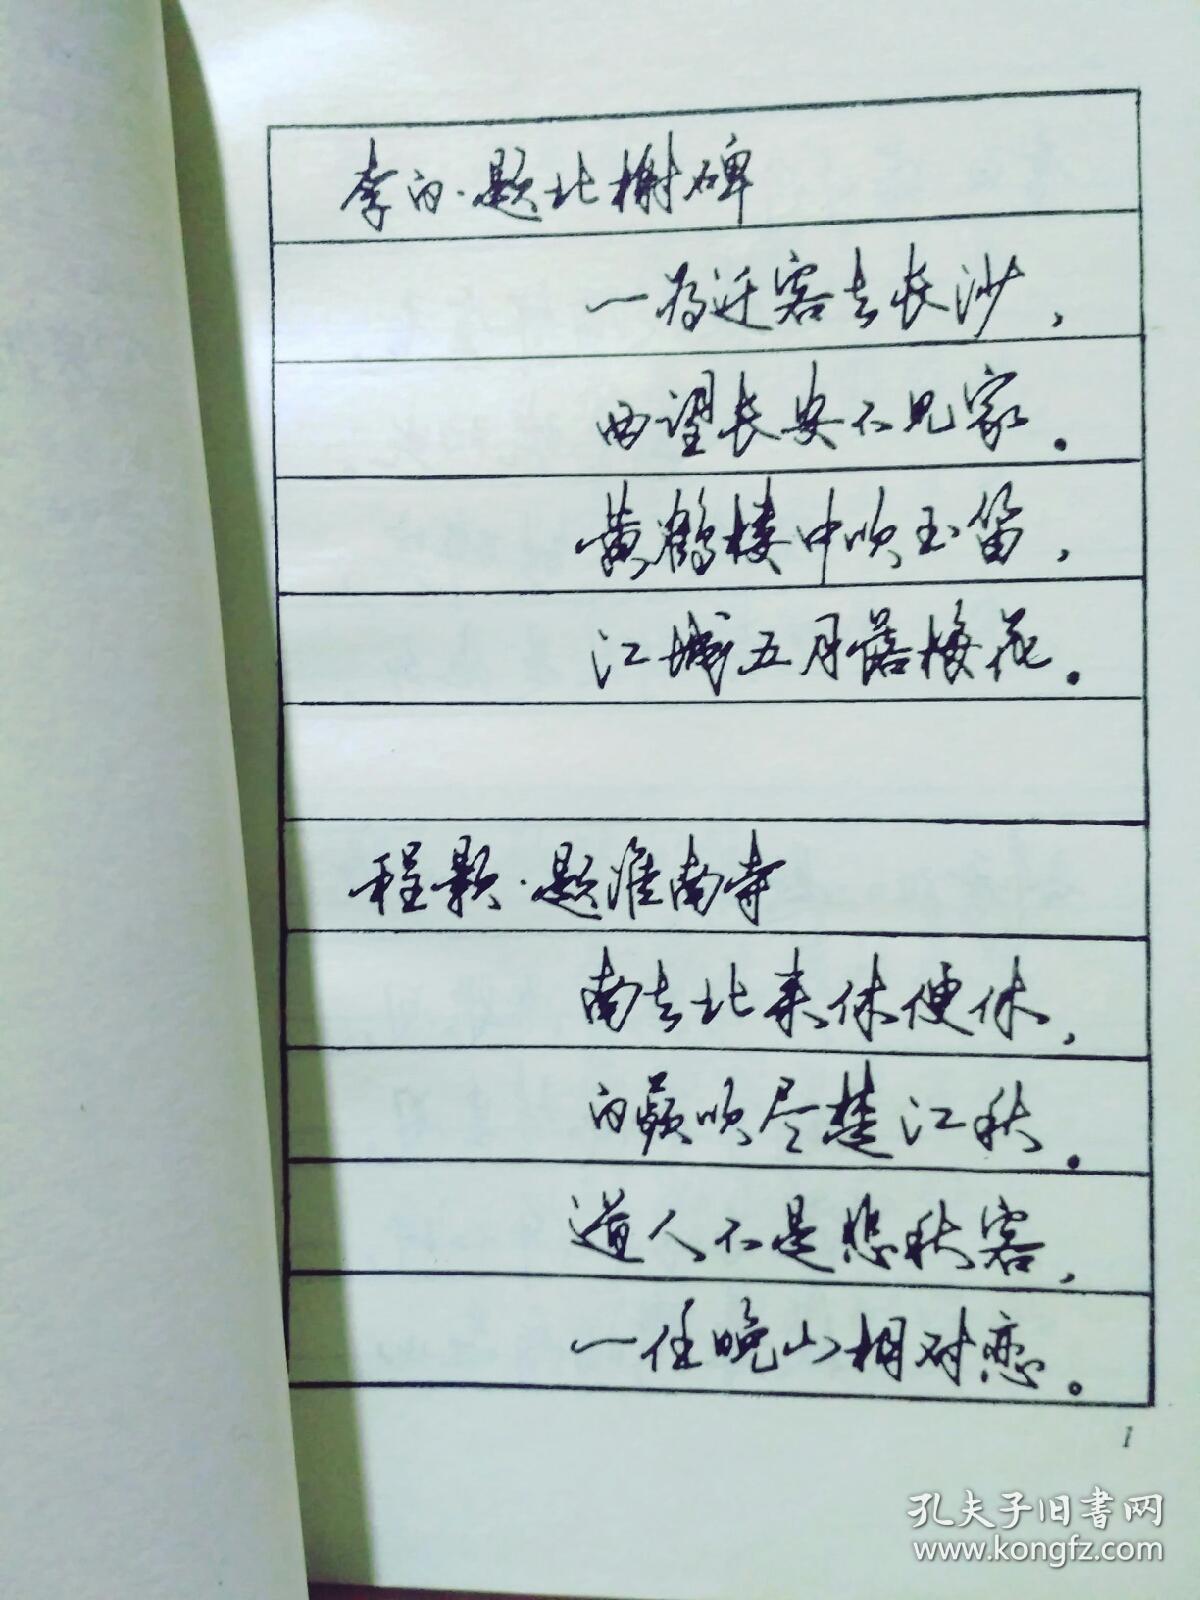 李白·题北榭碑
一为迁客去长沙，
西望长安不见家。
黄鹤楼中吹玉笛，
江城五月落梅花。
程颢·题淮南寺
南去北来休便休，
白蘋吹尽楚江秋。
道人不是悲秋客，
一任晚山相对恋。
1
孔夫子旧书网
www.kongfz.com